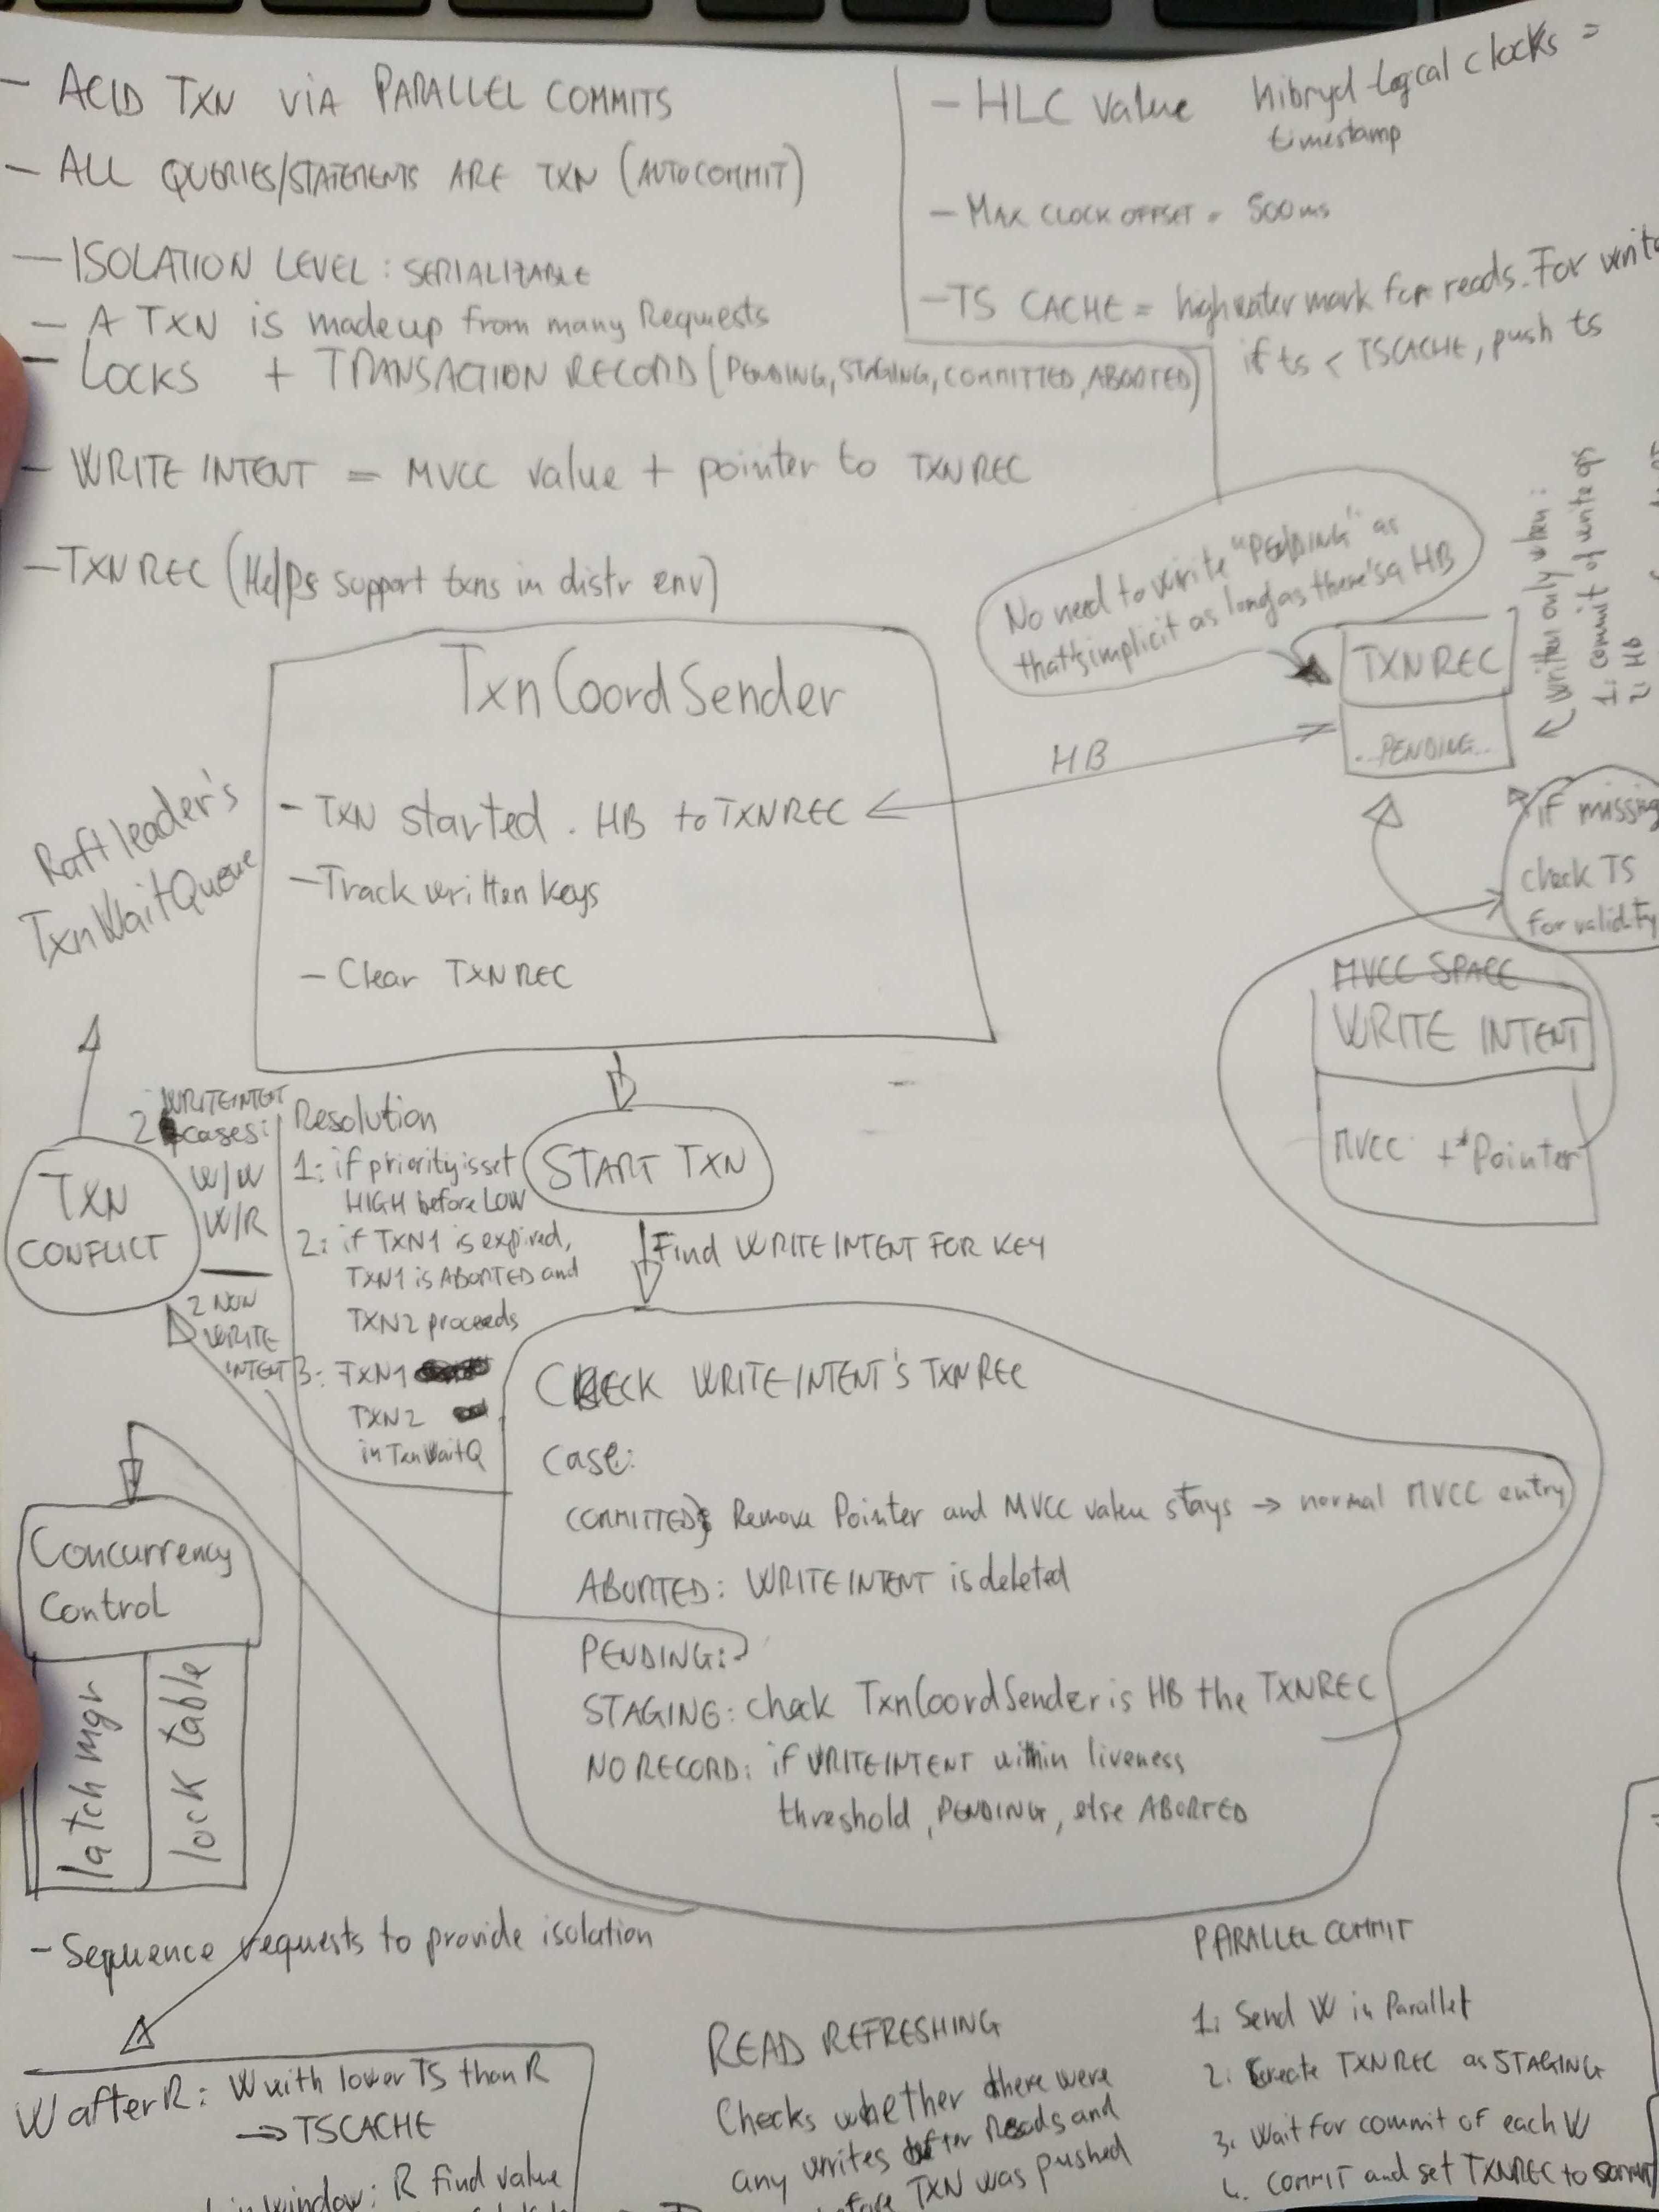 - ACID TXN VIA PARALLEL COMMITS
- ALL QUERIES/STATEMENTS ARE TXN (AUTOCOMMIT)
- ISOLATION LEVEL: SERIALIZABLE
- A TXN is made up from many Requests
- LOCKS + TRANSACTION RECORD (PENDING, STAGING, COMMITTED, ABORTED)
- WRITE INTENT = MVCC value + pointer to TXNREC
- TXNREC (Helps support txns in distr env)
- HLC value hibryd logical clocks =
timestamp
- MAX CLOCK OFFSET = 500ms
- TS CACHE = high water mark for reads. For
if ts < TSCACHE, push ts
No need to write "PENDING" as
that's implicit as long as there's a HB
TXNREC
..PENDING..
Written only when:
1: commit of write ops
2: HB
if missing
check TS
for validity
MVCC SPACE
WRITE INTENT
MVCC + Pointer
TxnCoordSender
- TXN started. HB to TXNREC
- Track written keys
- Clear TXNREC
HB
Raft leader's
TxnWaitQueue
TXN
CONFLICT
WRITEINTENT
2 cases:
W/W
W/R
2 NON
WRITE
INTENT
Resolution
1: if priority is set
HIGH before LOW
2: if TXN1 is expired,
TXN1 is ABORTED and
TXN2 proceeds
3: TXN1
TXN2
in TxnWaitQ
START TXN
Find WRITEINTENT FOR KEY
CHECK WRITEINTENT'S TXNREC
Case:
COMMITTED: Remove Pointer and MVCC value stays → normal MVCC entry
ABORTED: WRITEINTENT is deleted
PENDING:
STAGING: check TxnCoordSender is HB the TXNREC
NO RECORD: if WRITEINTENT within liveness
threshold, PENDING, else ABORTED
Concurrency
Control
latch mgr
lock table
- Sequence requests to provide isolation
W after R: W with lower TS than R
→ TSCACHE
window: R find value
READ REFRESHING
Checks whether there were
any writes after Reads and
before TXN was pushed
PARALLEL COMMIT
1: Send W in Parallel
2: Create TXNREC as STAGING
3. Wait for commit of each W
4. COMMIT and set TXNREC to